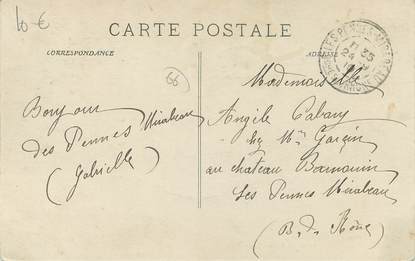 10 €
CARTE POSTALE
CORRESPONDANCE
ADRESSE
11 35
24
66
Bonjour
des Pennes Mirabeau
(Gabrielle)
Mademoiselle
Angèle Cabany
chez Mr Garcin
au chateau
Les Pennes Mirabeau
(B. d. Rône)